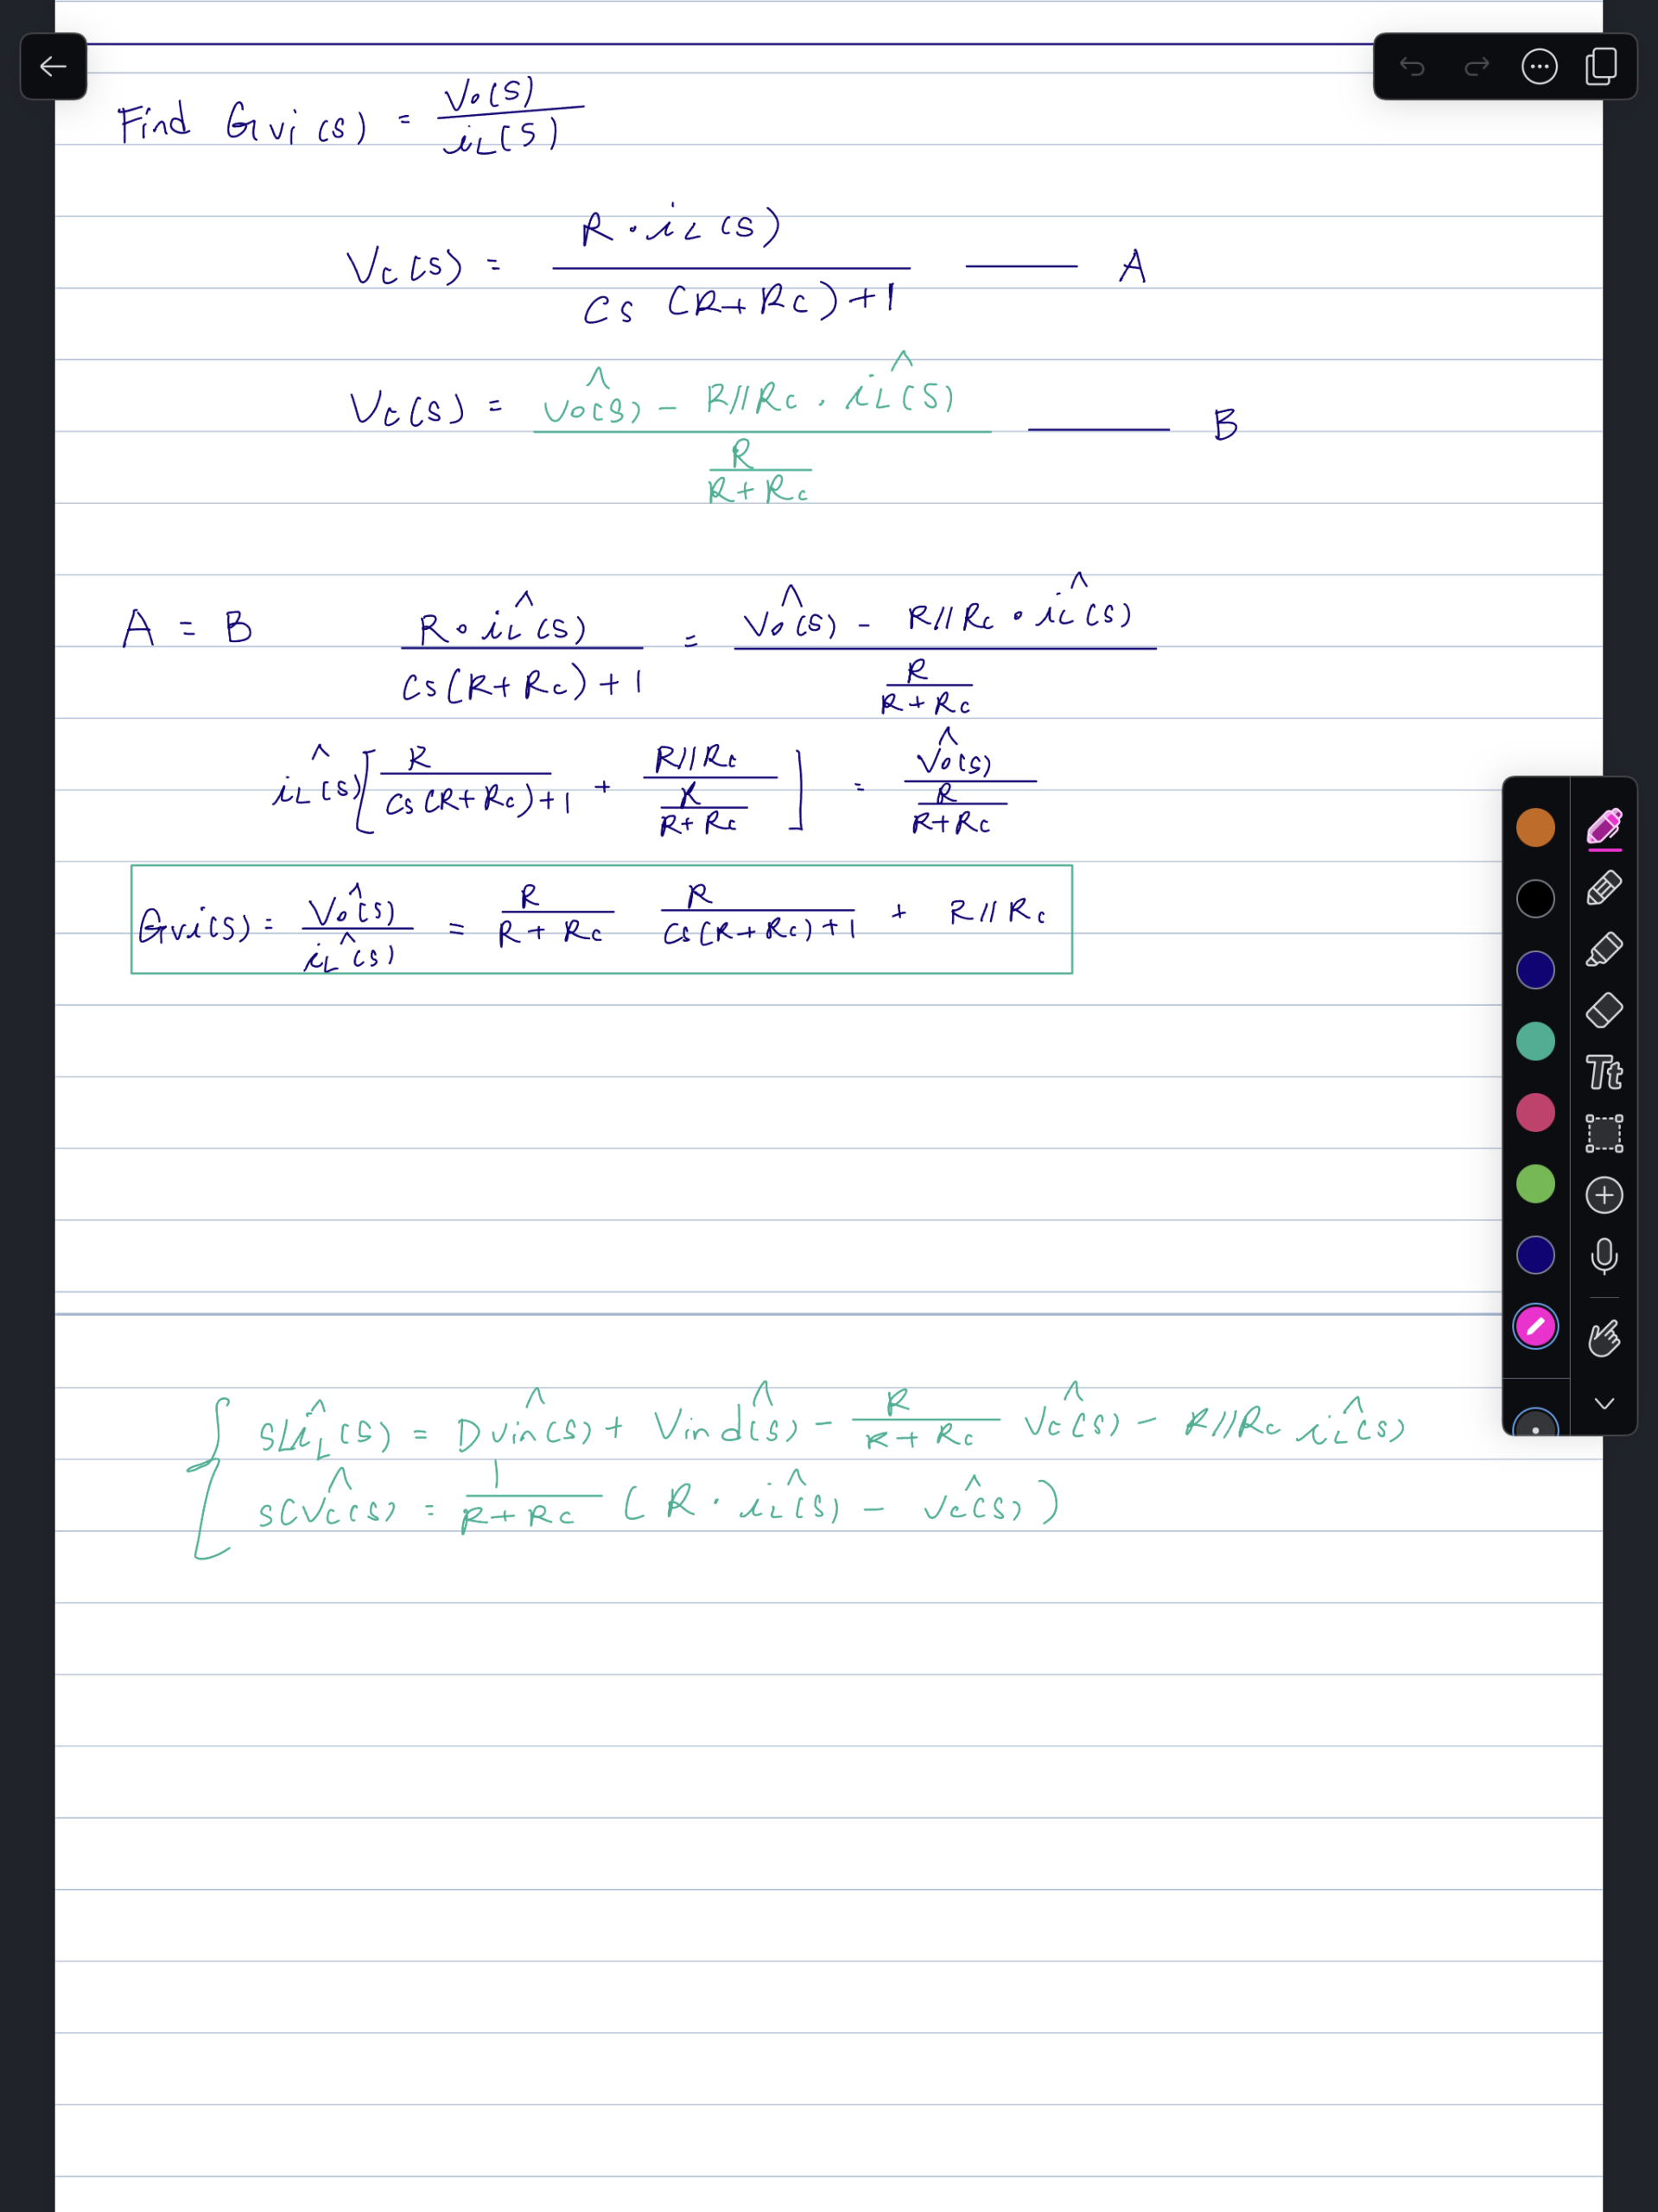 Find Gvi(s) = Vo(s) / iL(s)
Vc(s) = R·iL(s) / Cs(R+Rc)+1 —— A
Vc(s) = v̂o(s) - R//Rc · îL(s) / R / R+Rc —— B
A = B R·îL(s) / Cs(R+Rc)+1 = V̂o(s) - R//Rc · îL(s) / R / R+Rc
îL(s)[R / Cs(R+Rc)+1 + R//Rc / R / R+Rc] = V̂o(s) / R / R+Rc
Gvi(s) = V̂o(s) / îL(s) = R / R+Rc R / Cs(R+Rc)+1 + R//Rc
{ sLîL(s) = Dv̂in(s) + Vind̂(s) - R / R+Rc V̂c(s) - R//Rc îL(s)
sCV̂c(s) = 1 / R+Rc (R·îL(s) - v̂c(s))
Tt